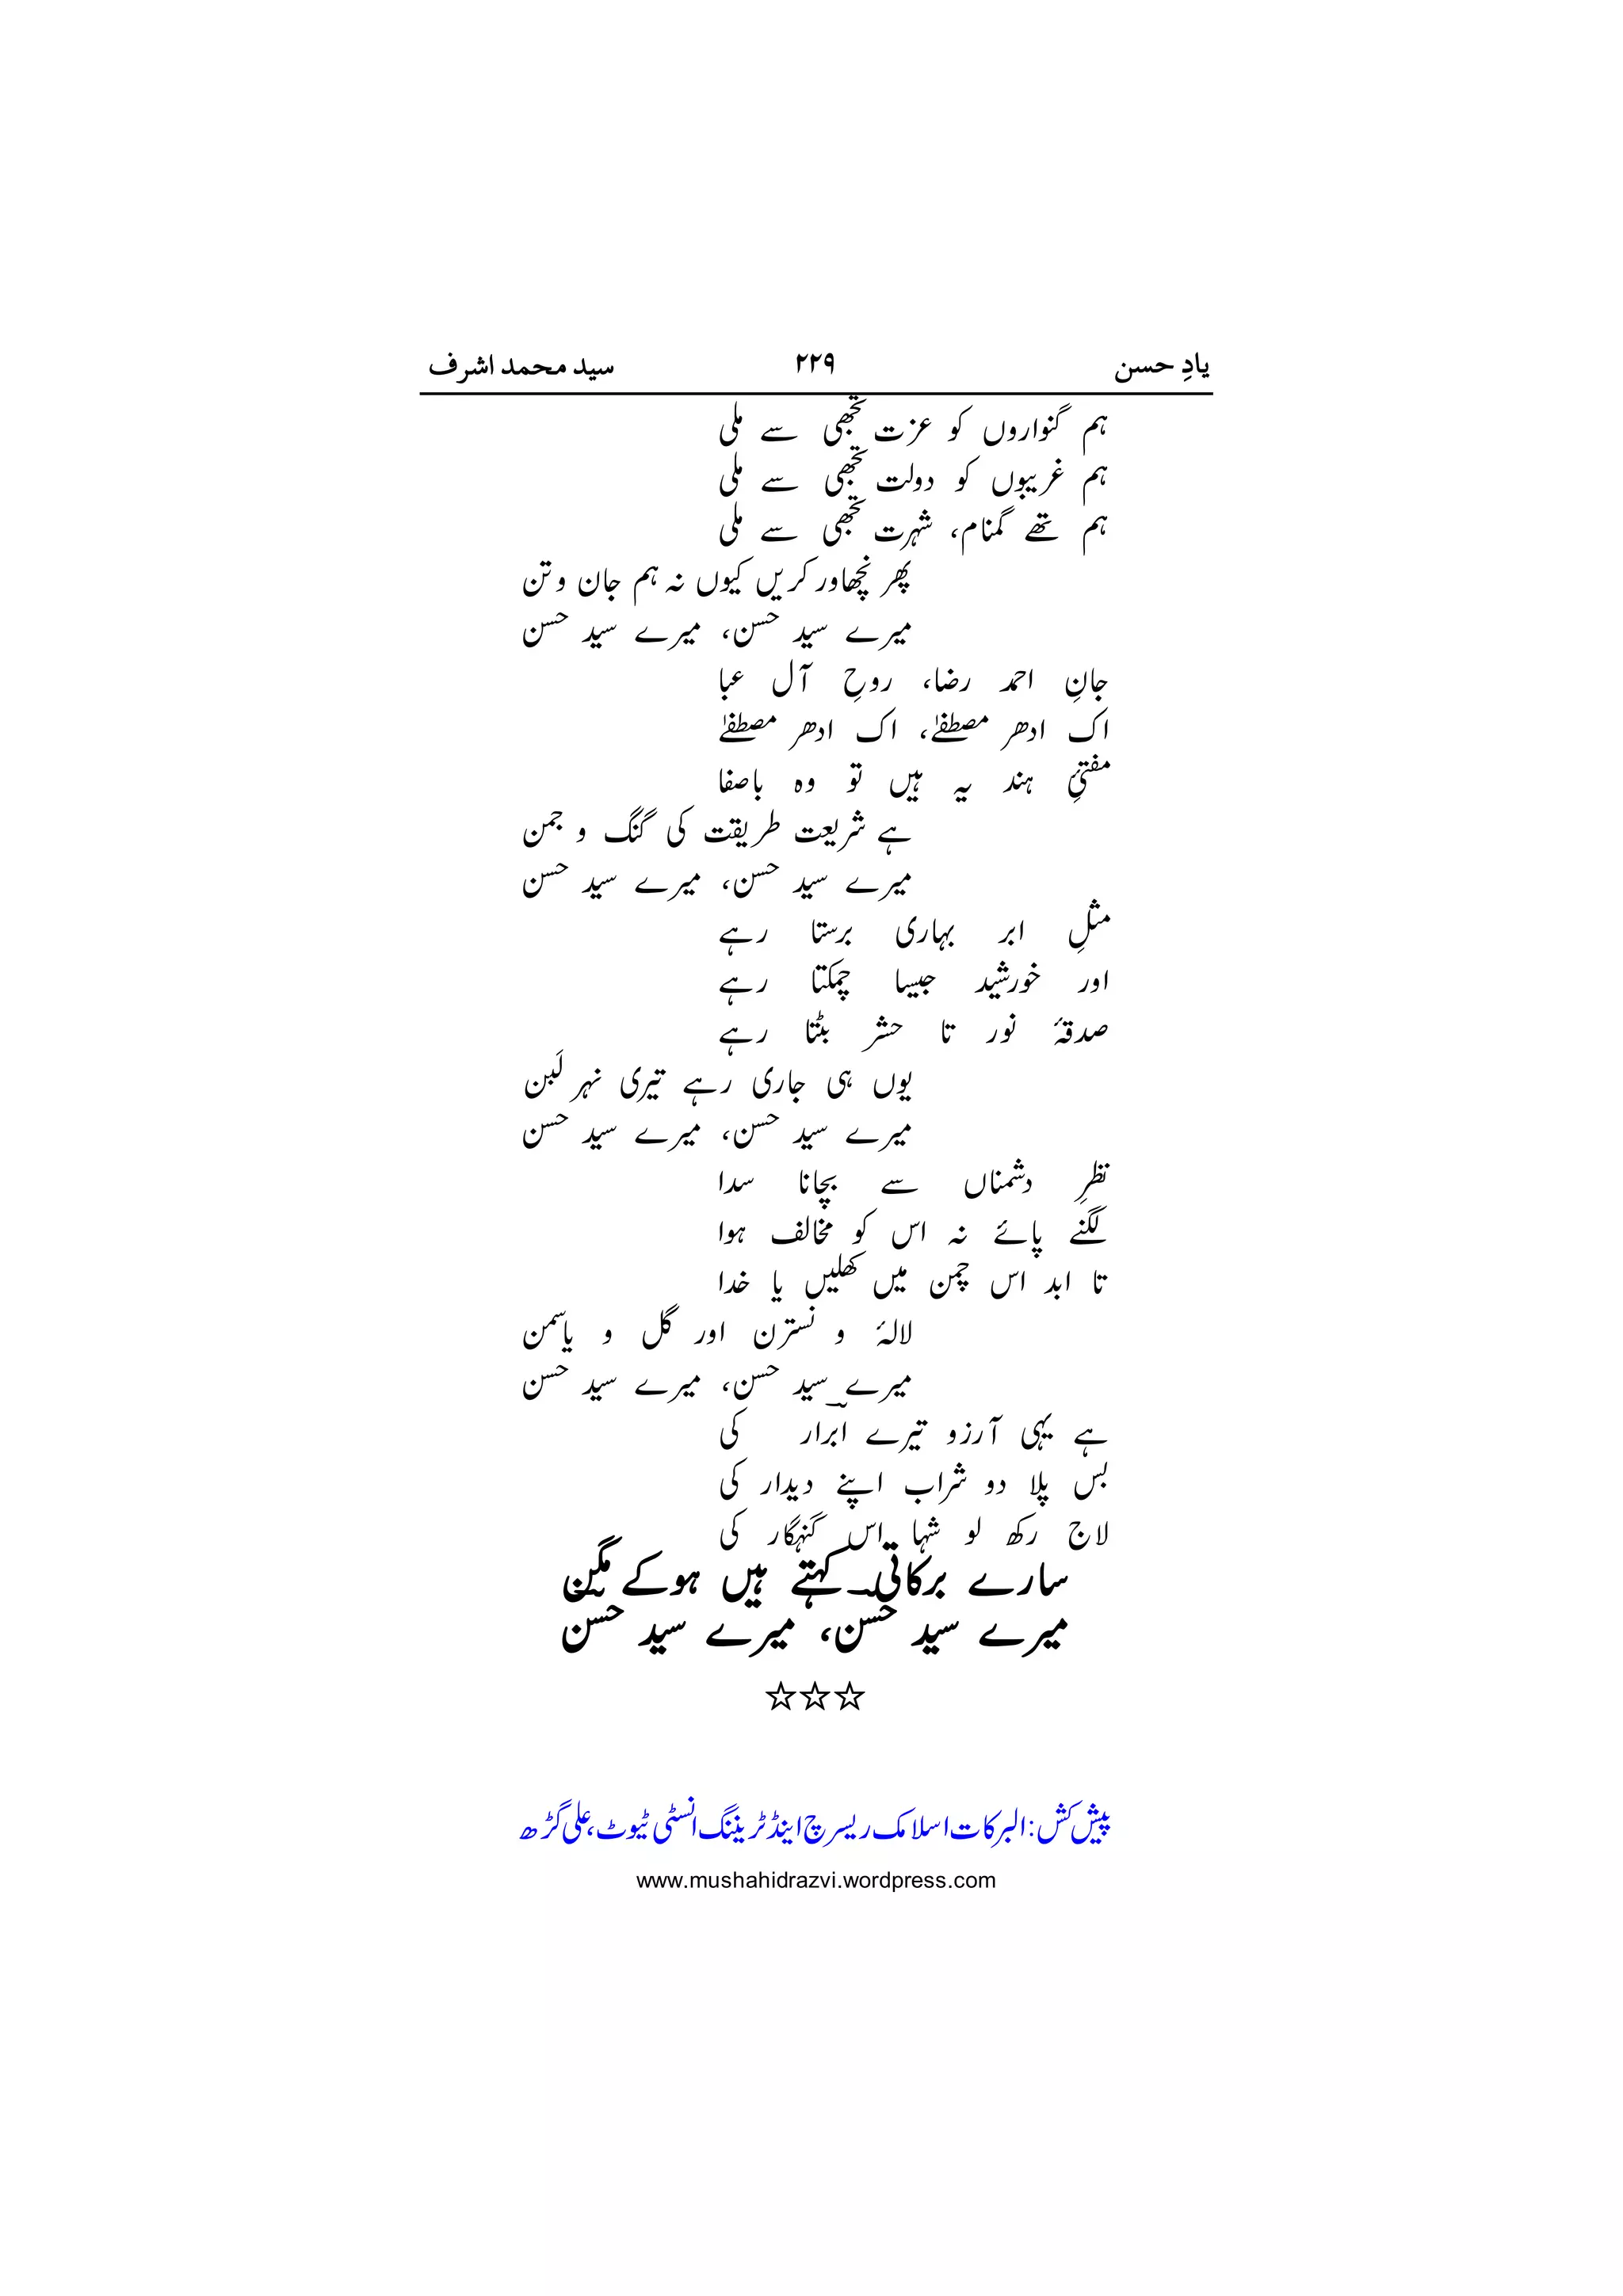 یادِ حسن ۲۲۹ سید محمد اشرف
ہم گنواروں کو عزت تجھی سے ملی
ہم غریبوں کو دولت تجھی سے ملی
ہم تھے گمنام، شہرت تجھی سے ملی
پھر نچھاور کریں کیوں نہ ہم جان و تن
میرے سید حسن، میرے سید حسن
جانِ احمد رضا، روحِ آل عبا
اک ادھر مصطفےٰ، اک ادھر مصطفےٰ
مفتیِٔ ہند یہ ہیں تو وہ باصفا
ہے شریعت طریقت کی گنگ و جمن
میرے سید حسن، میرے سید حسن
مثلِ ابر بہاری برستا رہے
اور خورشید جیسا چمکتا رہے
صدقۂ نور تا حشر بٹتا رہے
یوں ہی جاری رہے تیری نہر لَبن
میرے سید حسن، میرے سید حسن
نظرِ دشمناں سے بچانا سدا
لگنے پائے نہ اس کو مخالف ہوا
تا ابد اس چمن میں کھلیں یا خدا
لالۂ و نسترن اور گل و یاسمن
میرے سید حسن، میرے سید حسن
ہے یہی آرزو تیرے ابرار کی
بس پلا دو شراب اپنے دیدار کی
لاج رکھ لو شہا اس گنہگار کی
سارے برکاتی کہتے ہیں ہوکے مگن
میرے سید حسن، میرے سید حسن
☆☆☆
پیش کش: البرکات اسلامک ریسرچ اینڈ ٹریننگ انسٹی ٹیوٹ، علی گڑھ
www.mushahidrazvi.wordpress.com